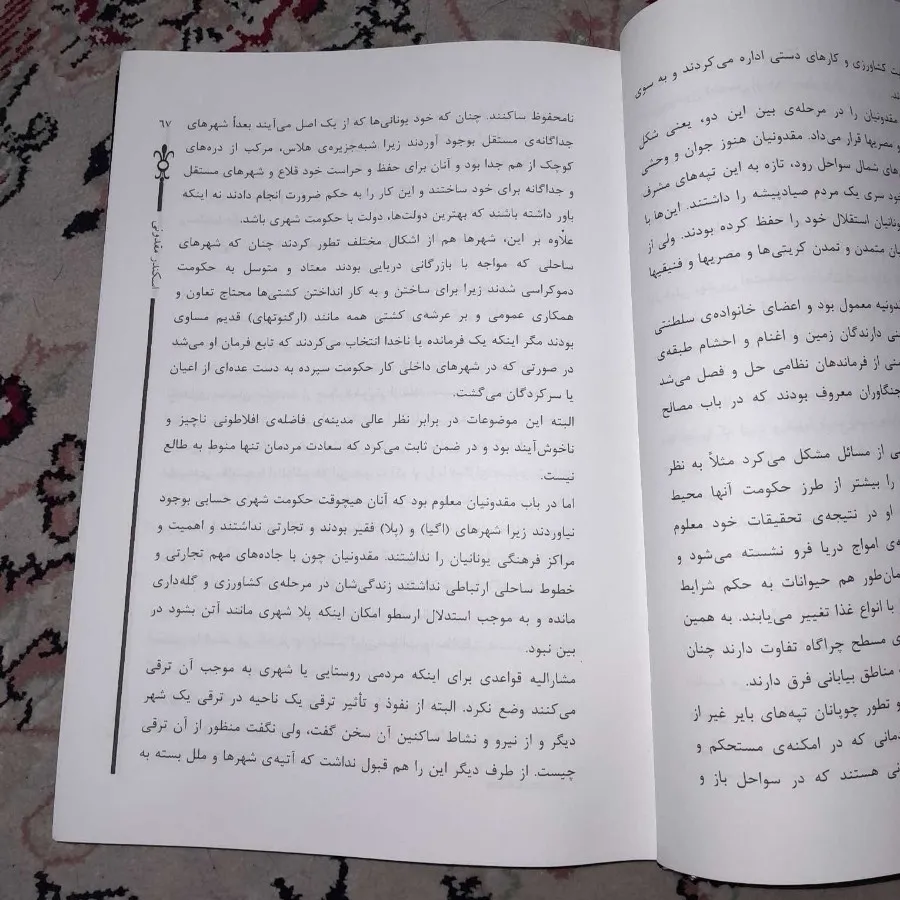 ت کشاورزی و کارهای دستی اداره می‌کردند و به سوی
ند.
مقدونیان را در مرحله‌ی بین این دو، یعنی شکل
و مصریها قرار می‌داد. مقدونیان هنوز جوان و وحشی
های شمال سواحل رود، تازه به این تپه‌های مشرف
خود سری یک مردم صیادپیشه را داشتند. این‌ها با
ونانیان استقلال خود را حفظ کرده بودند. ولی از
یان متمدن و تمدن کریتی‌ها و مصریها و فنیقیها
دونیه معمول بود و اعضای خانواده‌ی سلطنتی
نی دارندگان زمین و اغنام و احشام طبقه‌ی
نی از فرماندهان نظامی حل و فصل می‌شد
جنگاوران معروف بودند که در باب مصالح
ی از مسائل مشکل می‌کرد مثلاً به نظر
را بیشتر از طرز حکومت آنها محیط
او در نتیجه‌ی تحقیقات خود معلوم
ه‌ی امواج دریا فرو نشسته می‌شود و
مان‌طور هم حیوانات به حکم شرایط
با انواع غذا تغییر می‌یابند. به همین
ی مسطح چراگاه تفاوت دارند چنان
مناطق بیابانی فرق دارند.
و تطور چوپانان تپه‌های بایر غیر از
دمانی که در امکنه‌ی مستحکم و
نی هستند که در سواحل باز و
۶۷
اسکندر مقدونی
نامحفوظ ساکنند. چنان که خود یونانی‌ها که از یک اصل می‌آیند بعداً شهرهای
جداگانه‌ی مستقل بوجود آوردند زیرا شبه‌جزیره‌ی هلاس، مرکب از دره‌های
کوچک از هم جدا بود و آنان برای حفظ و حراست خود قلاع و شهرهای مستقل
و جداگانه برای خود ساختند و این کار را به حکم ضرورت انجام دادند نه اینکه
باور داشته باشند که بهترین دولت‌ها، دولت یا حکومت شهری باشد.
علاوه بر این، شهرها هم از اشکال مختلف تطور کردند چنان که شهرهای
ساحلی که مواجه با بازرگانی دریایی بودند معتاد و متوسل به حکومت
دموکراسی شدند زیرا برای ساختن و به کار انداختن کشتی‌ها محتاج تعاون و
همکاری عمومی و بر عرشه‌ی کشتی همه مانند (ارگنوتهای) قدیم مساوی
بودند مگر اینکه یک فرمانده یا ناخدا انتخاب می‌کردند که تابع فرمان او می‌شد
در صورتی که در شهرهای داخلی کار حکومت سپرده به دست عده‌ای از اعیان
یا سرکردگان می‌گشت.
البته این موضوعات در برابر نظر عالی مدینه‌ی فاضله‌ی افلاطونی ناچیز و
ناخوش‌آیند بود و در ضمن ثابت می‌کرد که سعادت مردمان تنها منوط به طالع
نیست.
اما در باب مقدونیان معلوم بود که آنان هیچوقت حکومت شهری حسابی بوجود
نیاوردند زیرا شهرهای (اگیا) و (پلا) فقیر بودند و تجارتی نداشتند و اهمیت و
مراکز فرهنگی یونانیان را نداشتند. مقدونیان چون با جاده‌های مهم تجارتی و
خطوط ساحلی ارتباطی نداشتند زندگی‌شان در مرحله‌ی کشاورزی و گله‌داری
مانده و به موجب استدلال ارسطو امکان اینکه پلا شهری مانند آتن بشود در
بین نبود.
مشارالیه قواعدی برای اینکه مردمی روستایی یا شهری به موجب آن ترقی
می‌کنند وضع نکرد. البته از نفوذ و تأثیر ترقی یک ناحیه در ترقی یک شهر
دیگر و از نیرو و نشاط ساکنین آن سخن گفت، ولی نگفت منظور از آن ترقی
چیست. از طرف دیگر این را هم قبول نداشت که آتیه‌ی شهرها و ملل بسته به